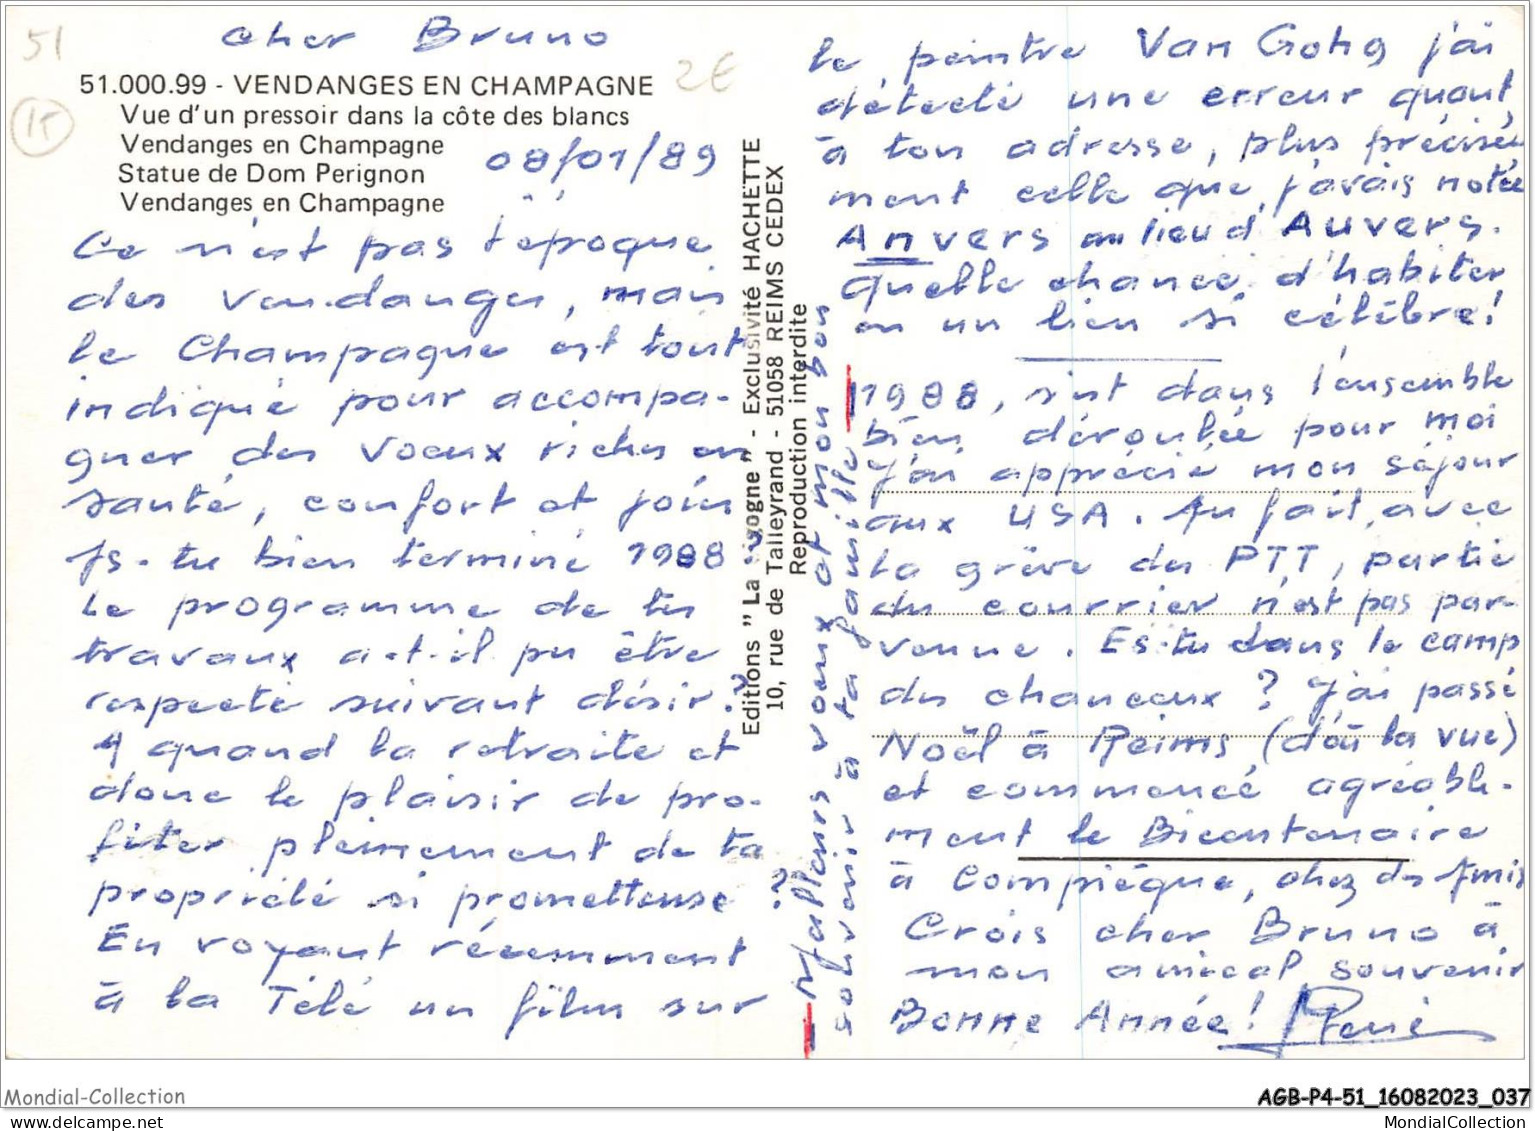 51
cher Bruno
2€
51.000.99 - VENDANGES EN CHAMPAGNE
Vue d'un pressoir dans la côte des blancs
Vendanges en Champagne
Statue de Dom Perignon
Vendanges en Champagne
08/01/89
Ce n'est pas l'époque
des vendanges, mais
le Champagne est tout
indiqué pour accompa-
gner des voeux riches en
santé, confort et joies
As-tu bien terminé 1988 ?
Le programme de tes
travaux a-t-il pu être
respecté suivant désir ?
A quand la retraite et
donc le plaisir de pro-
fiter pleinement de ta
propriété si prometteuse ?
En voyant récemment
à la Télé un film sur
Editions " La Cigogne " - Exclusivité HACHETTE
10, rue de Talleyrand - 51058 REIMS CEDEX
Reproduction interdite
le peintre Van Gohg j'ai
détecté une erreur quant
à ton adresse, plus précisé
ment celle que j'avais notée
Anvers au lieu d'Auvers.
quelle chance d'habiter
en un lieu si célèbre !
1988, s'est dans l'ensemble
bien déroulée pour moi
J'ai apprécié mon séjour
aux USA. Au fait, avec
la grève des PTT, partie
du courrier n'est pas par-
venue. Es-tu dans le camp
des chanceux ? J'ai passé
Noël à Reims (d'où la vue)
et commencé agréable-
ment le Bicentenaire
à Compiègne, chez des Amis
Crois cher Bruno à
mon amical souvenir
Bonne Année !
Meilleurs voeux et mon bon
souvenir à ta famille
Mondial-Collection
AGB-P4-51_16082023_037
MondialCollection